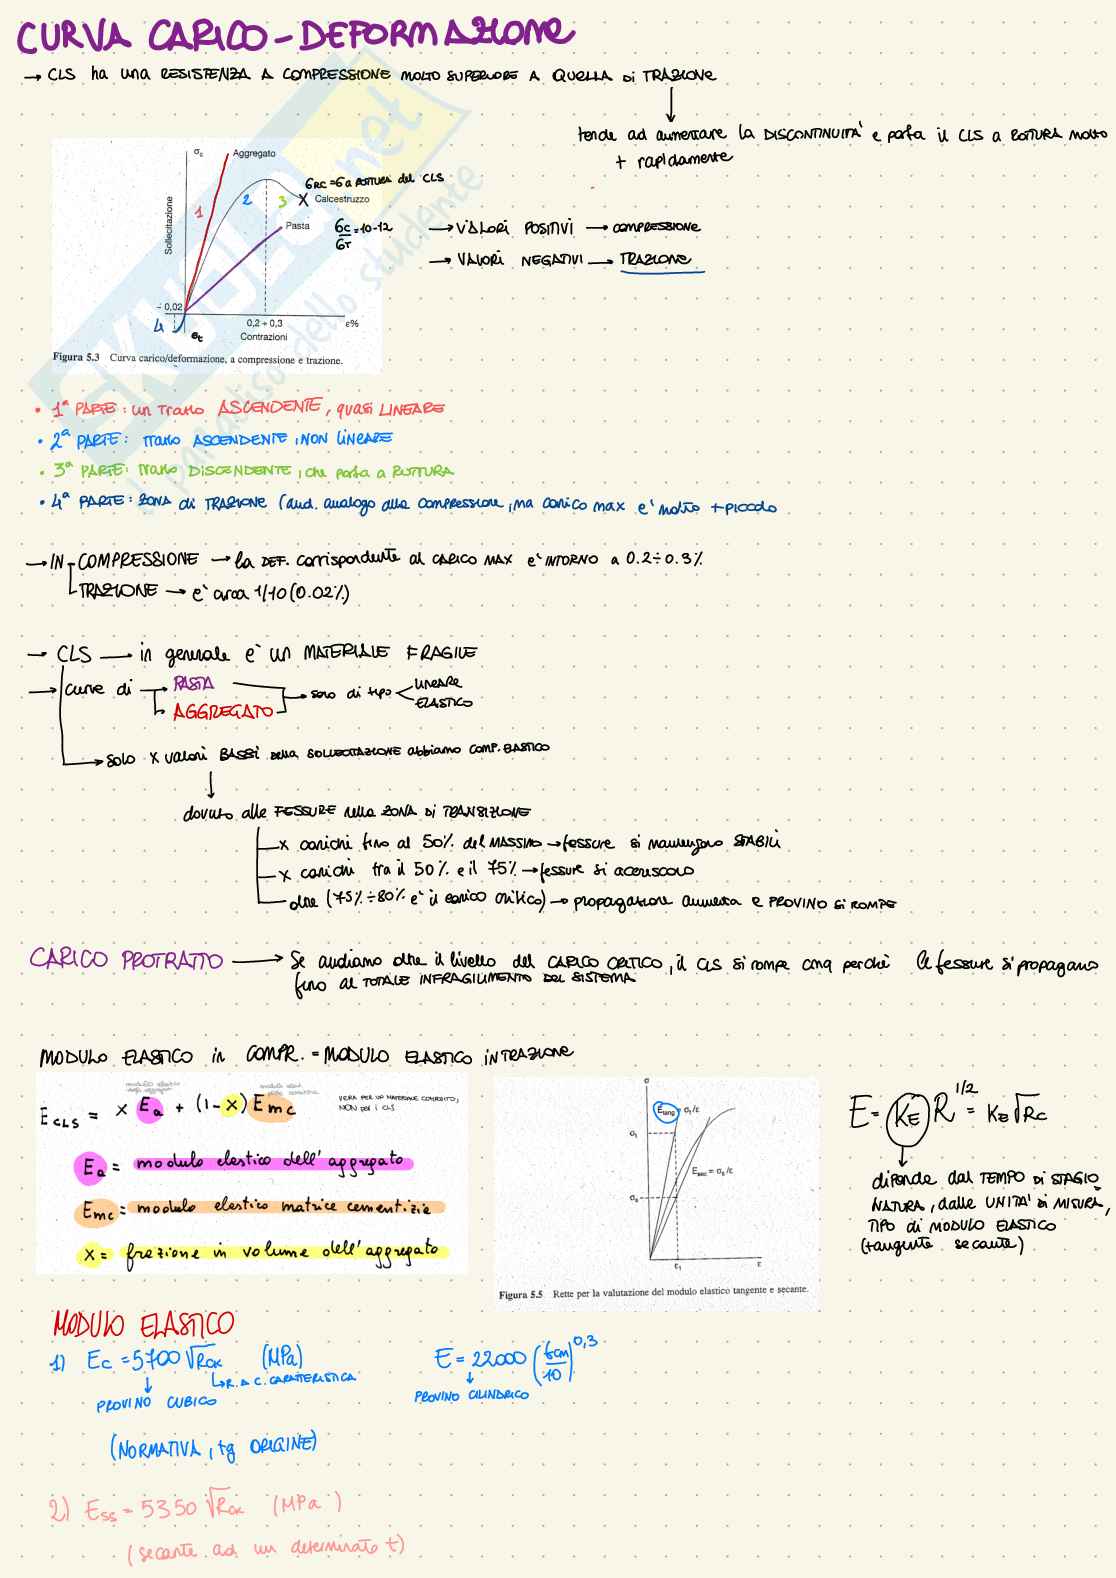 CURVA CARICO-DEFORMAZIONE
→ CLS ha una RESISTENZA A COMPRESSIONE MOLTO SUPERIORE A QUELLA di TRAZIONE
tende ad aumentare la DISCONTINUITA' e porta il CLS a ROTTURA molto
+ rapidamente
σc
Aggregato
σRC = σ a ROTTURA del CLS
1 2 3 X Calcestruzzo
Sollecitazione
Pasta
σC/σT = 10-12
→ VALORI POSITIVI → COMPRESSIONE
→ VALORI NEGATIVI → TRAZIONE
- 0,02
4
εt
0,2 ÷ 0,3
ε%
Contrazioni
Figura 5.3 Curva carico/deformazione, a compressione e trazione.
• 1ª PARTE: un tratto ASCENDENTE, quasi LINEARE
• 2ª PARTE: tratto ASCENDENTE, NON LINEARE
• 3ª PARTE: tratto DISCENDENTE, che porta a ROTTURA
• 4ª PARTE: ZONA di TRAZIONE (and. analogo alla compressione, ma carico max e' molto + piccolo
→ IN COMPRESSIONE → la DEF. corrispondente al CARICO MAX e' INTORNO a 0.2÷0.3%
TRAZIONE → e' circa 1/10 (0.02%)
→ CLS → in generale e' un MATERIALE FRAGILE
→ curve di PASTA
AGGREGATO
→ sono di tipo LINEARE
ELASTICO
→ solo x valori BASSI della SOLLECITAZIONE abbiamo COMP. ELASTICO
dovuto alle FESSURE nella ZONA DI TRANSIZIONE
x carichi fino al 50% del MASSIMO → fessure si mantengono STABILI
x carichi tra il 50% e il 75% → fessure si accrescono
oltre (75% ÷ 80% e' il carico critico) → propagazione aumenta e PROVINO SI ROMPE
CARICO PROTRATTO → Se andiamo oltre il livello del CARICO CRITICO, il CLS si rompe cmq perchè le fessure si propagano
fino al TOTALE INFRAGILIMENTO DEL SISTEMA
MODULO ELASTICO in COMPR. = MODULO ELASTICO IN TRAZIONE
ECLS = x Ea + (1-x) Emc
VERA PER UN MATERIALE COMPOSITO,
NON per i CLS
Ea = modulo elastico dell'aggregato
Emc = modulo elastico matrice cementizia
x = frazione in volume dell'aggregato
σ
Etang = σt/ε
σt
Esec = σs/ε
σs
ε1
ε
Figura 5.5 Rette per la valutazione del modulo elastico tangente e secante.
E = KE R^1/2 = KE √Rc
dipende dal TEMPO DI STAGIO
NATURA, dalle UNITA' di MISURA,
TIPO di MODULO ELASTICO
(tangente secante)
MODULO ELASTICO
1) Ec = 5700 √Rck (MPa)
R. a C. CARATTERISTICA
PROVINO CUBICO
E = 22000 (fcm/10)^0,3
PROVINO CILINDRICO
(NORMATIVA, tg ORIGINE)
2) Ess = 5350 √Rck (MPa)
(secante ad un determinato t)